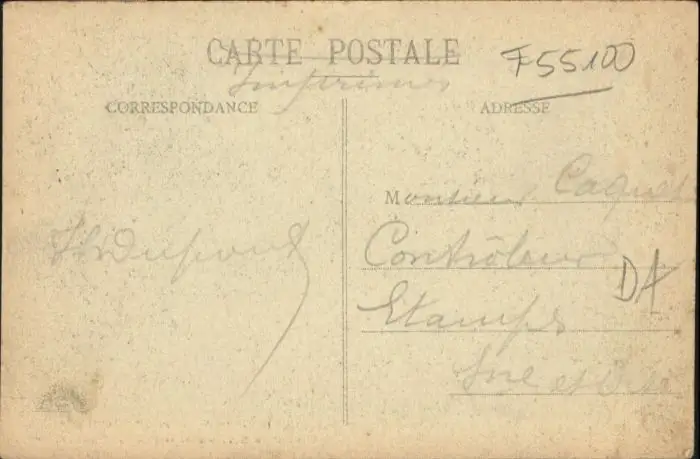 CARTE POSTALE
F55100
Imprimés
CORRESPONDANCE
ADRESSE
Monsieur Caquet
Contrôleur
DA
Etampes
Seine et Oise
H Dupont